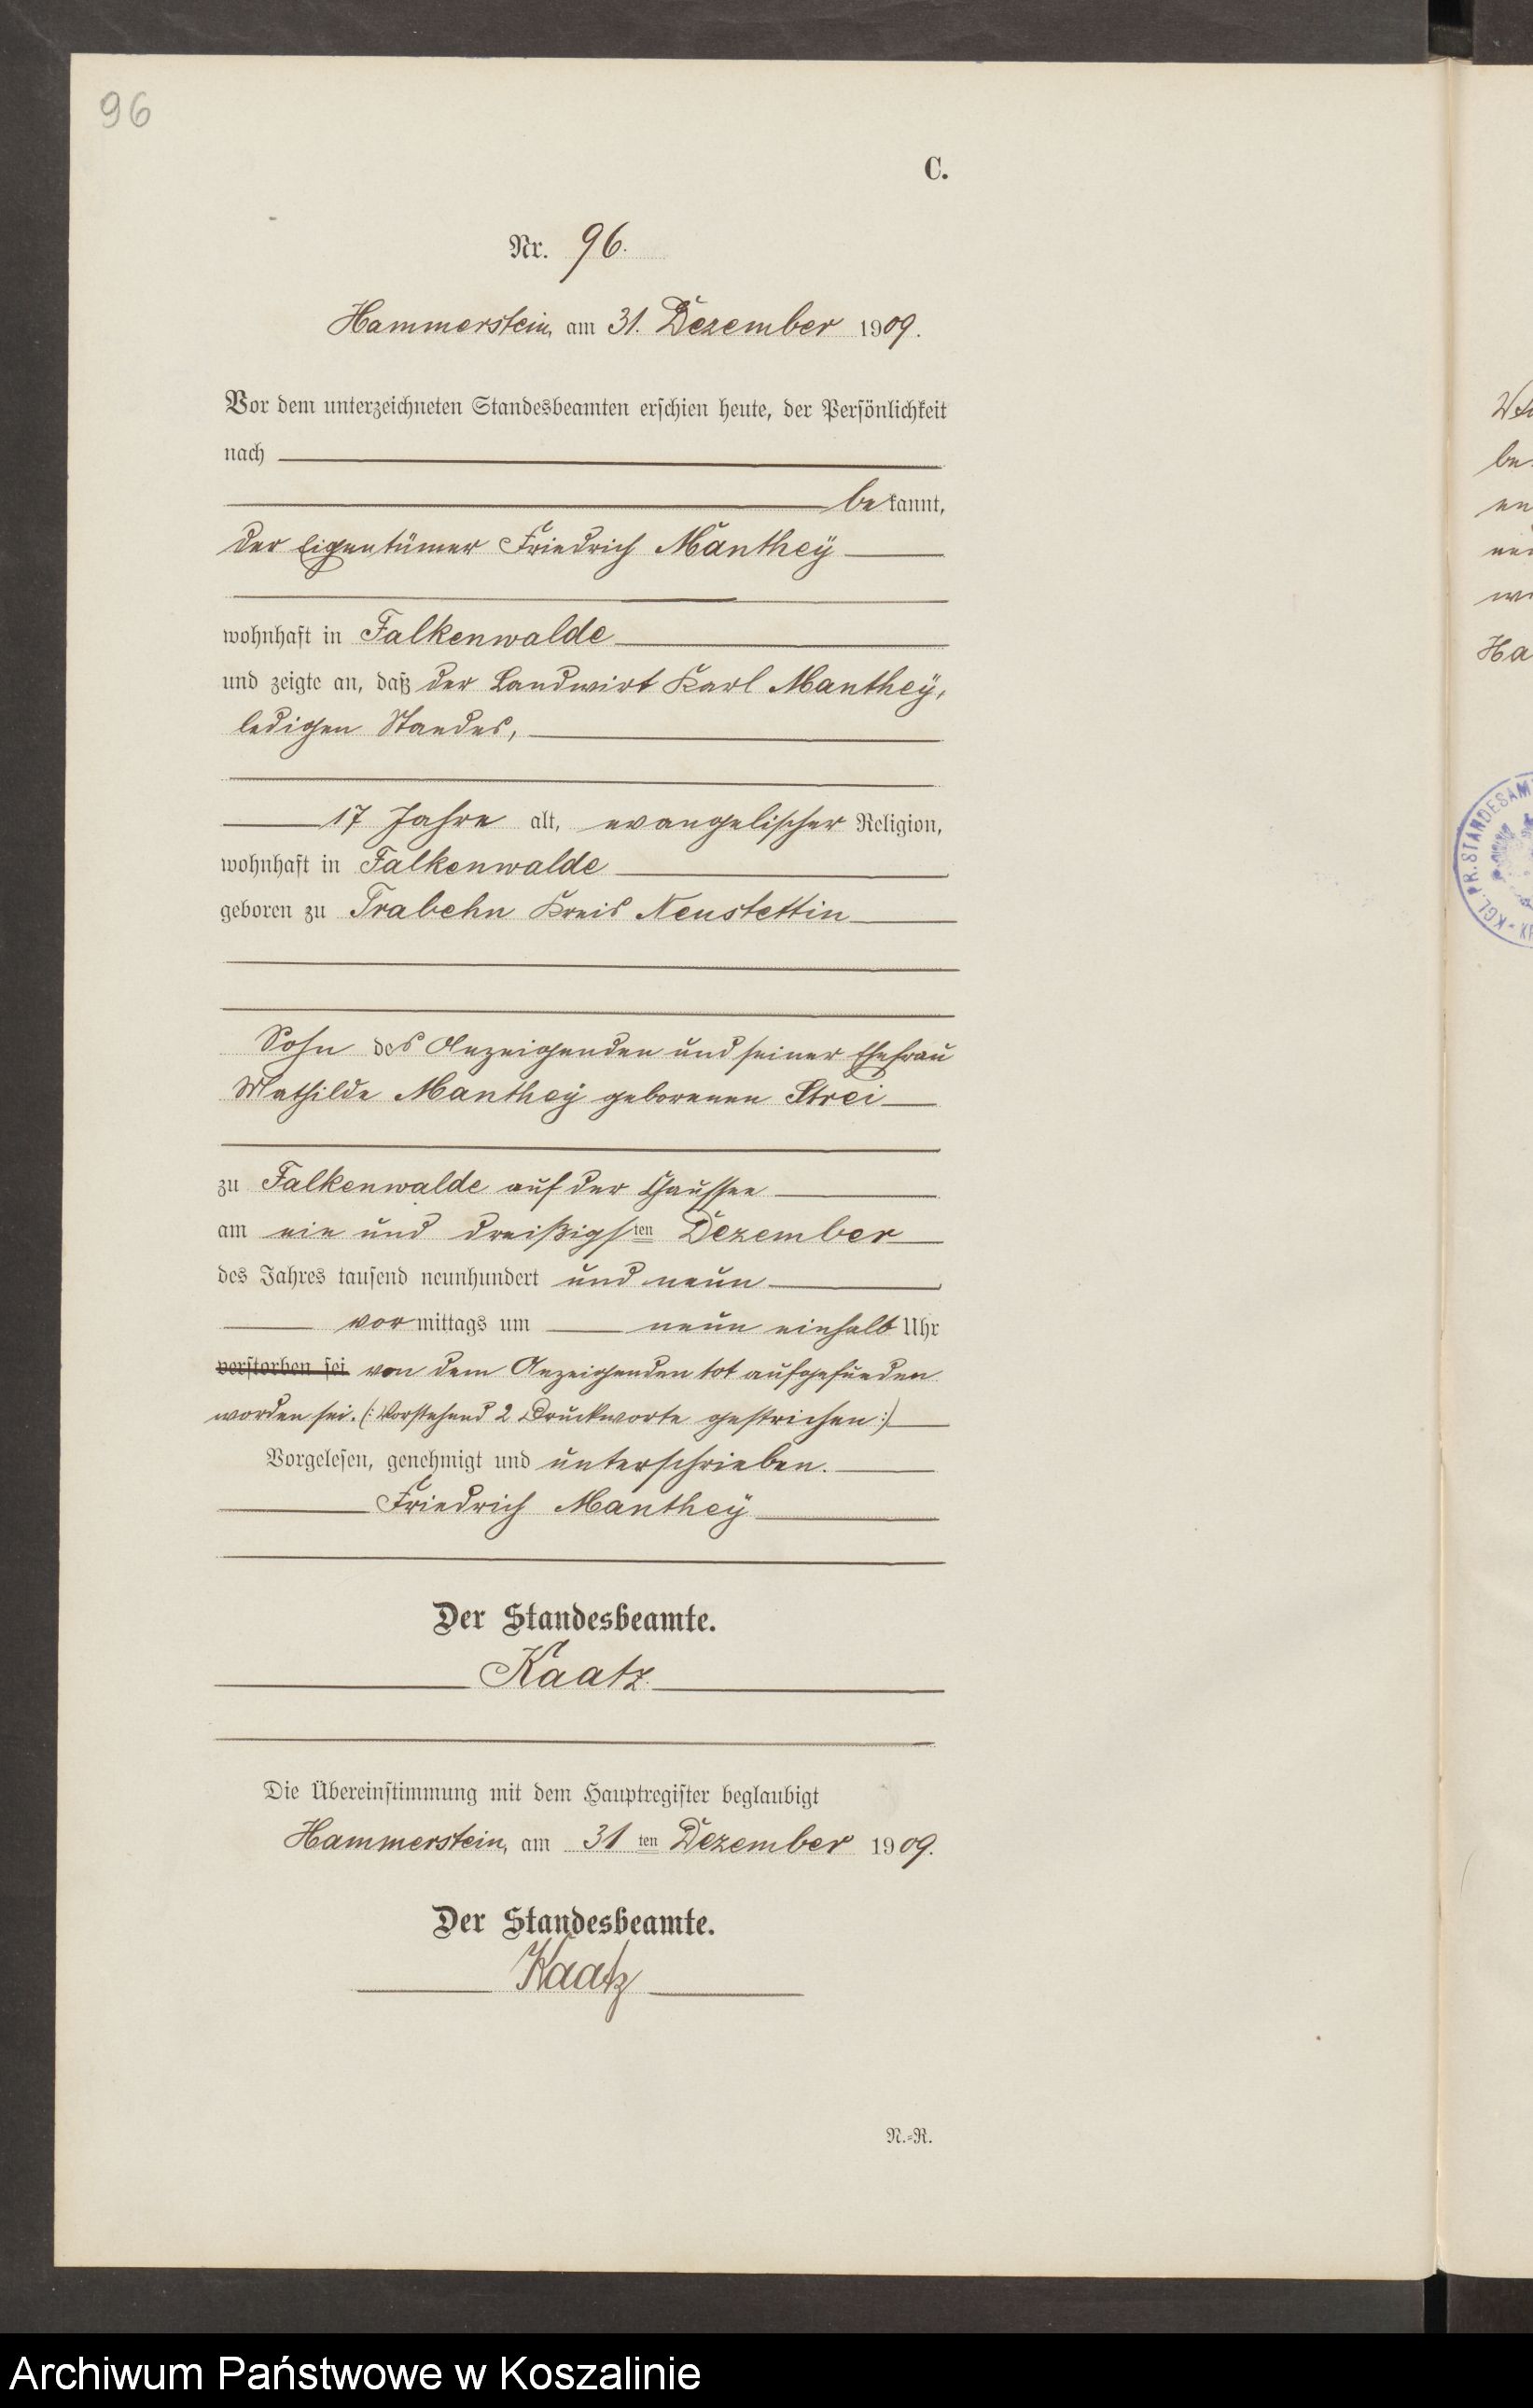 96
C.
Nr. 96.
Hammerstein, am 31. Dezember 1909.
Vor dem unterzeichneten Standesbeamten erschien heute, der Persönlichkeit
nach
bekannt,
der Eigentümer Friedrich Manthey
wohnhaft in Falkenwalde
und zeigte an, daß der Landwirt Karl Manthey,
ledigen Standes,
17 Jahre alt, evangelischer Religion,
wohnhaft in Falkenwalde
geboren zu Trabehn Kreis Neustettin
Sohn des Anzeigenden und seiner Ehefrau
Mathilde Manthey geborenen Strei
zu Falkenwalde auf der Chaussee
am ein und dreißigsten Dezember
des Jahres tausend neunhundert und neun
vormittags um neun einhalb Uhr
verstorben sei von dem Anzeigenden tot aufgefunden
worden sei. (: Vorstehend 2 Druckworte gestrichen :)
Vorgelesen, genehmigt und unterschrieben.
Friedrich Manthey
Der Standesbeamte.
Kaatz.
Die Übereinstimmung mit dem Hauptregister beglaubigt
Hammerstein, am 31ten Dezember 1909.
Der Standesbeamte.
Kaatz
N.-R.
be
en
Ha
KGL. PR. STANDESAM
Archiwum Państwowe w Koszalinie